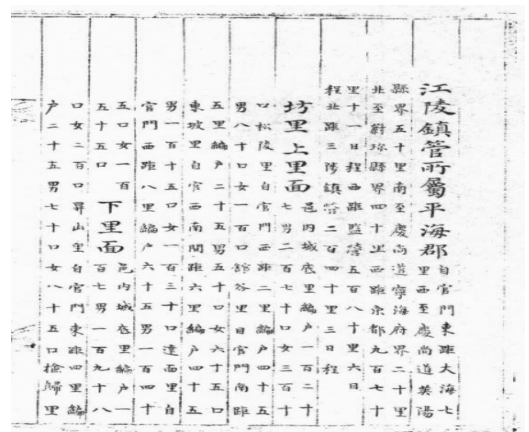 江陵鎮管所屬平海郡自官門東距大海七
里西至慶尚道英陽
縣界五十里南至慶尚道寧海府界二十里
北至蔚珍縣界四十里西距京都九百七十
里十一日程西距監營五百八十里六日
程北距三陟鎮營二百四十里三日程
坊里上里面邑內城底里編戶一百二十
七男二百七十口女三百十
口松陵里自官門西距二里編戶四十五
男八十口女一百口館谷里自官門南距
五里編戶二十五男五十口女六十五口
東坡里自官西南間距六里編戶四十五
男一百十五口女一百三十口遠面里自
官門西距八里編戶六十五男一百四十
五口女一百
五十五口
下里面邑內城底里編戶一
百七男一百九十八
口女二百口尋山里自官門東距四里編
戶二十五男七十口女八十五口歸里